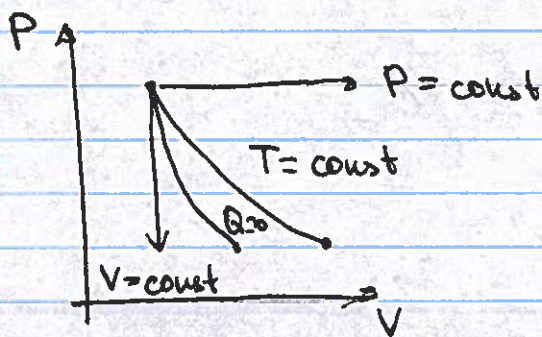 P
P = const
T = const
Q=0
V = const
V